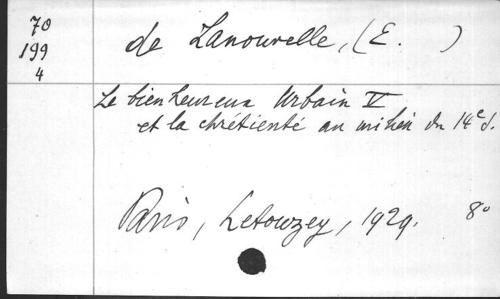 70
199
4
de Lanouvelle, (E. )
Le bienheureux Urbain V
et la chrétienté au milieu du 14e s.
Paris, Letouzey, 1929. 8°